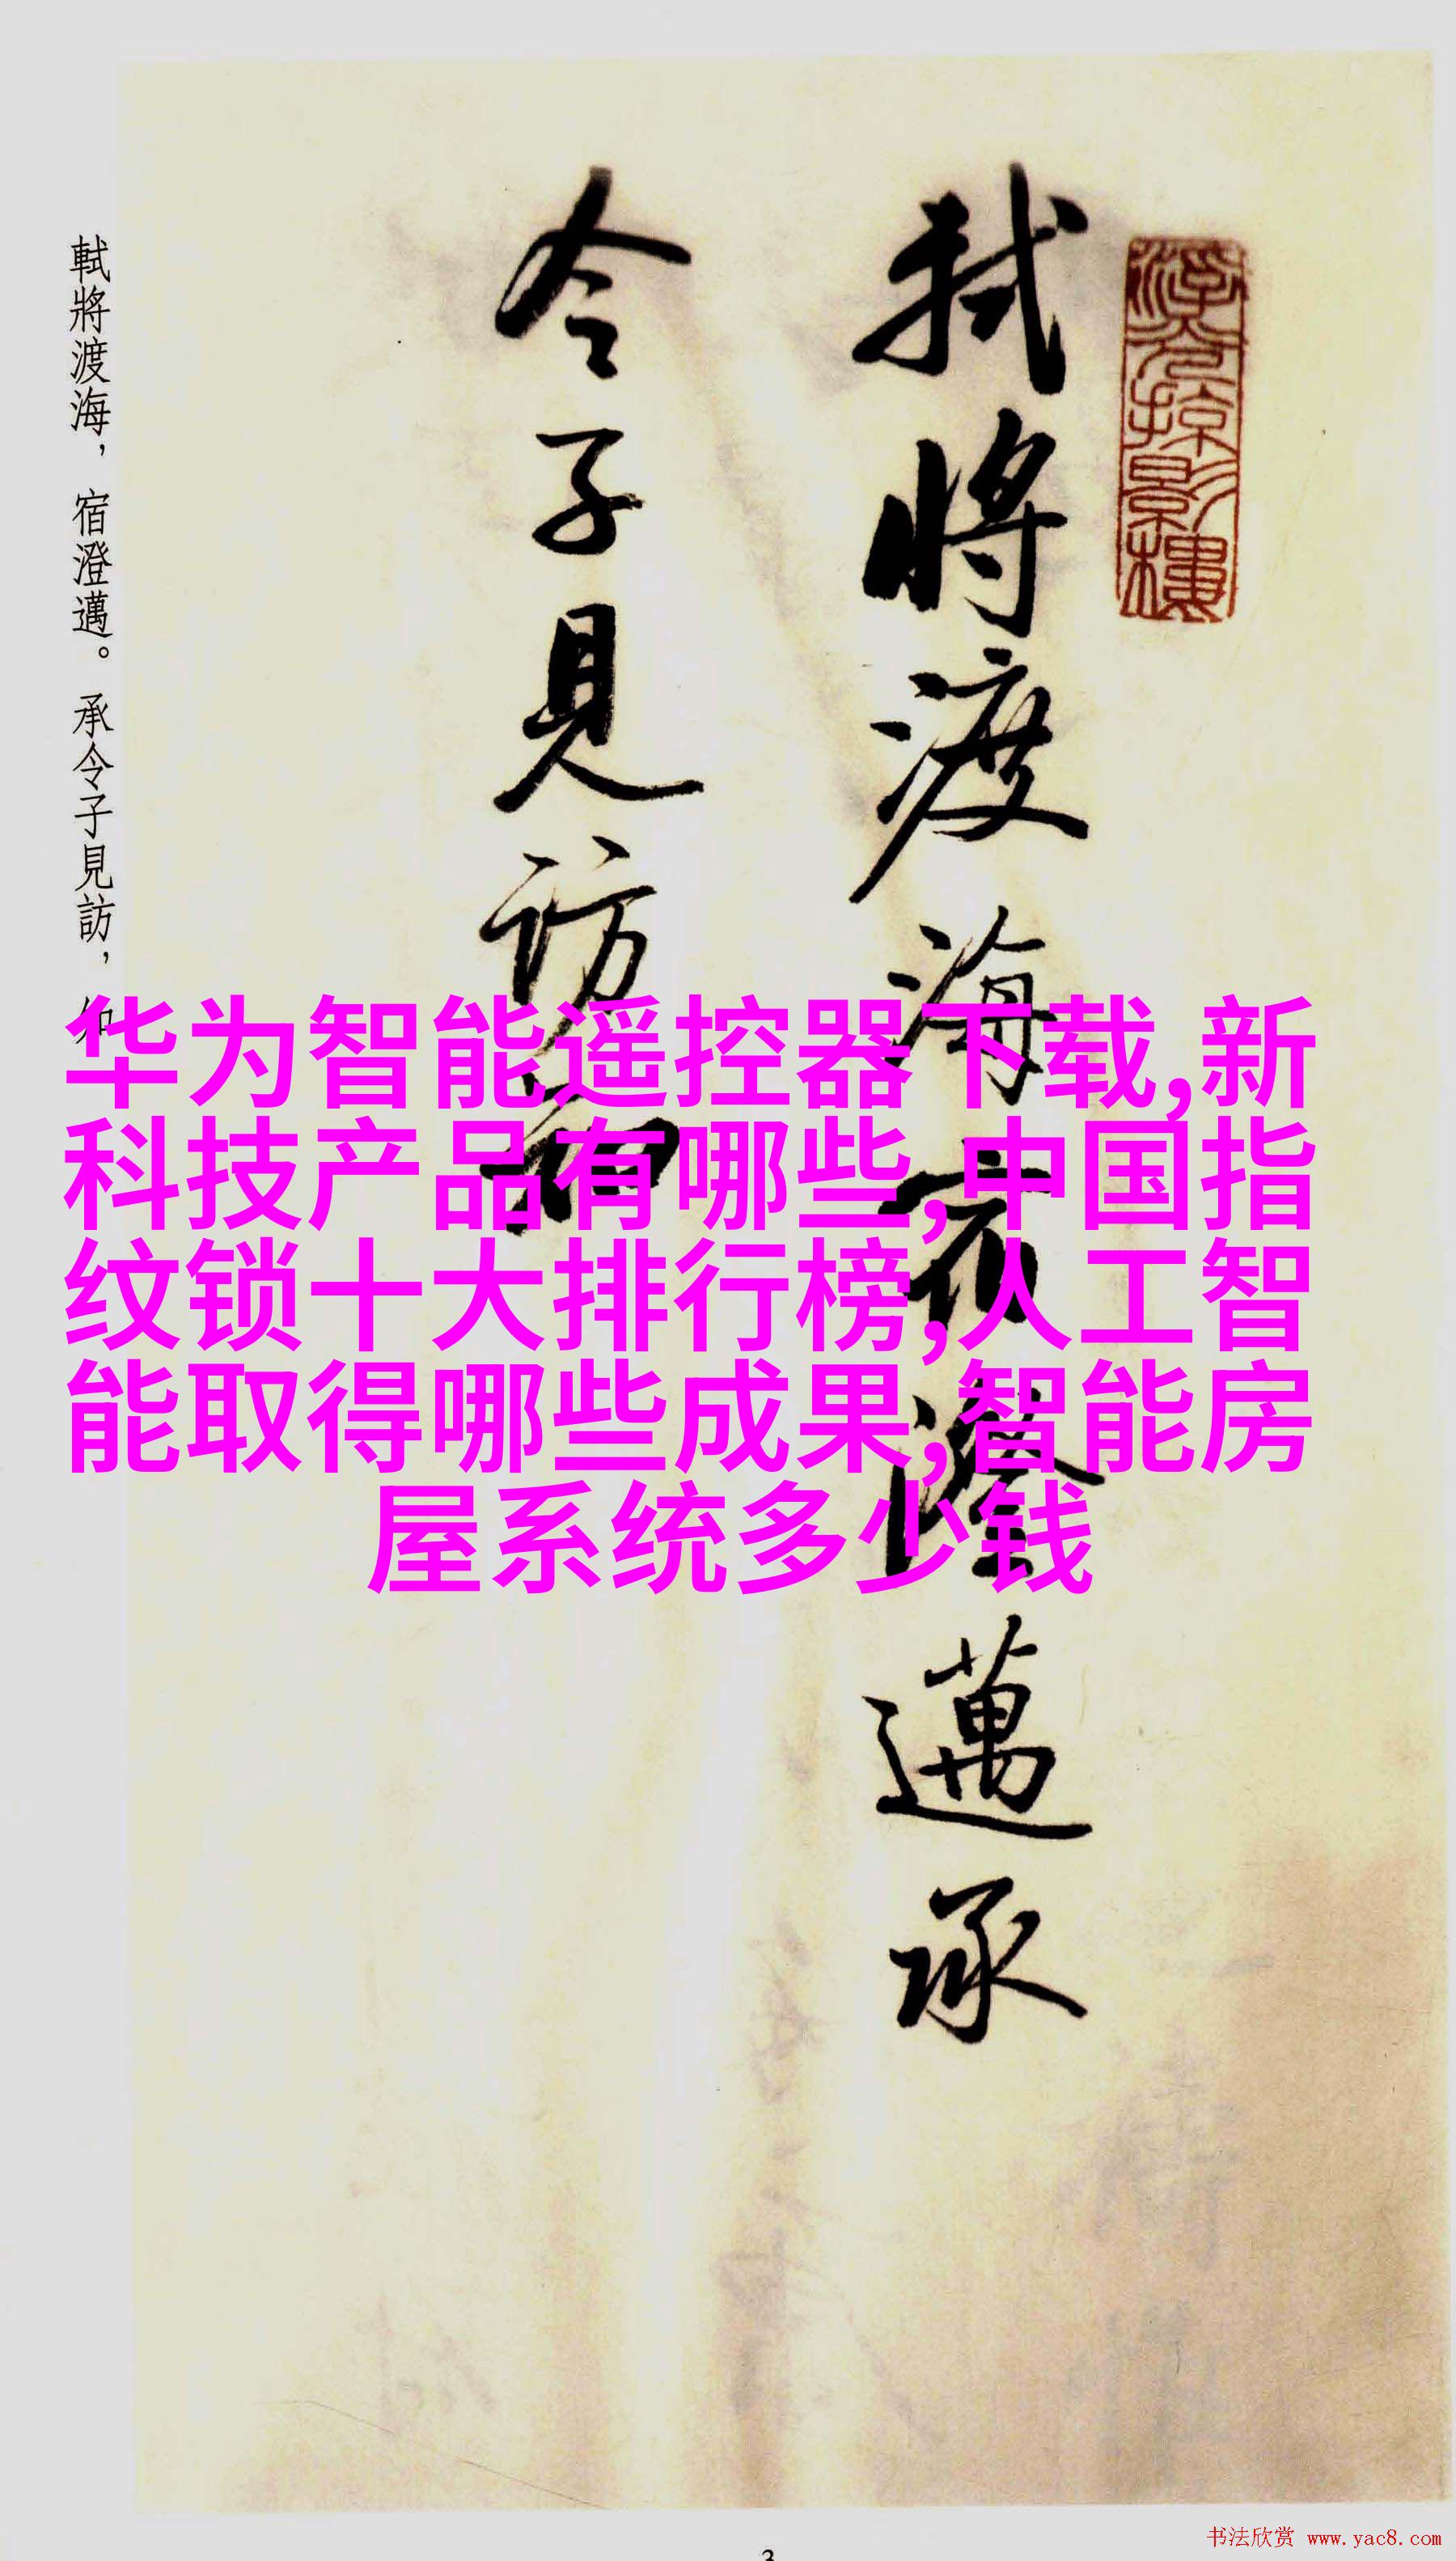 軾將渡海，宿澄邁。承令子見訪，知
軾將渡海宿澄邁承
令子見訪知
华为智能遥控器下载,新
科技产品有哪些,中国指
纹锁十大排行榜,人工智
能取得哪些成果,智能房
屋系统多少钱
3
书法欣赏 www.yac8.com